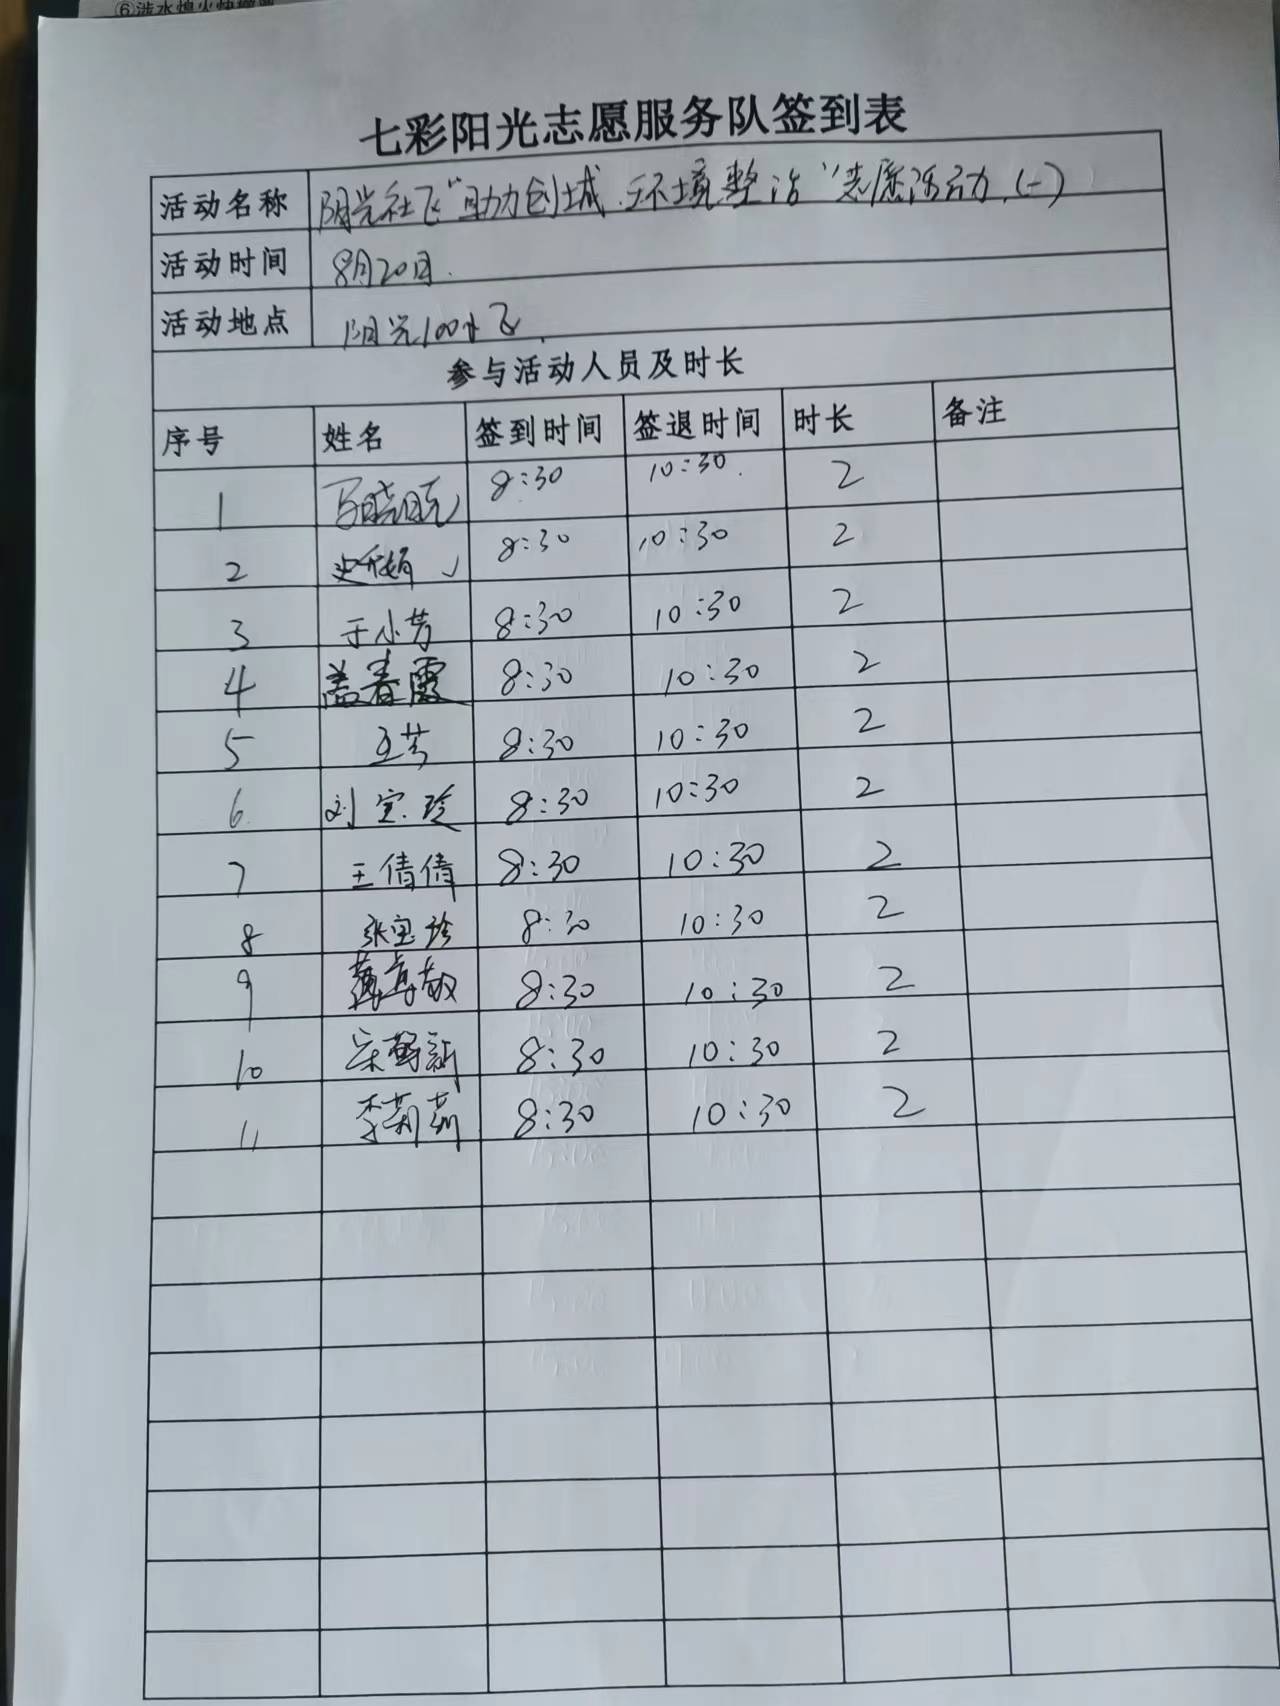 ⑥涉水熄火快撤离
七彩阳光志愿服务队签到表
活动名称 阳光社区“助力创城、环境整治”志愿活动(一)
活动时间 8月20日.
活动地点 阳光100小区.
参与活动人员及时长
序号 姓名 签到时间 签退时间 时长 备注
1 马晓 8:30 10:30. 2
2 史 娟 8:30 10:30 2
3 于小芳 8:30 10:30 2
4 盖春霞 8:30 10:30 2
5 王芳 8:30 10:30 2
6. 刘宝珍 8:30 10:30 2
7 王倩倩 8:30 10:30 2
8 张宝珍 8:30 10:30 2
9 8:30 10:30 2
10 宋 新 8:30 10:30 2
11 李莉莉 8:30 10:30 2